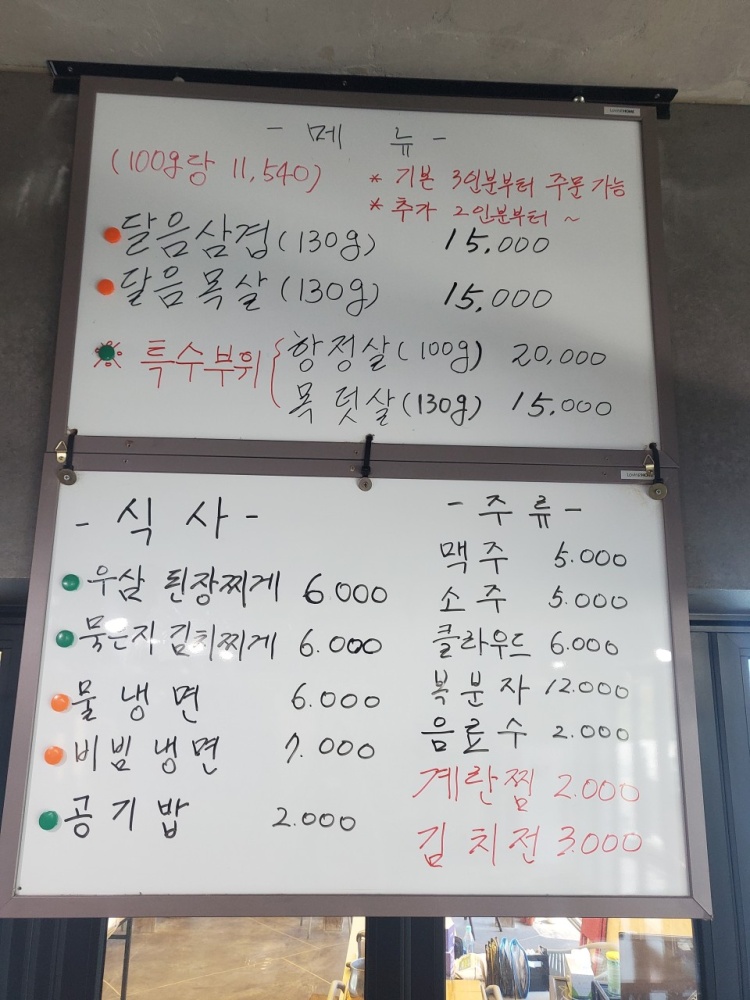 - 메 뉴 -
(100g당 11,540)
* 기본 3인분부터 주문 가능
* 추가 2인분부터 ~
달음삼겹(130g) 15.000
달음목살(130g) 15.000
※ 특수부위 { 항정살(100g) 20,000
목덧살(130g) 15.000
- 식 사 -
우삼 된장찌게 6.000
묵은지 김치찌게 6.000
물 냉 면 6.000
비빔 냉면 7.000
공기밥 2.000
- 주 류 -
맥 주 5.000
소 주 5.000
클라우드 6.000
복 분 자 12.000
음 료 수 2.000
계란찜 2.000
김 치 전 3.000